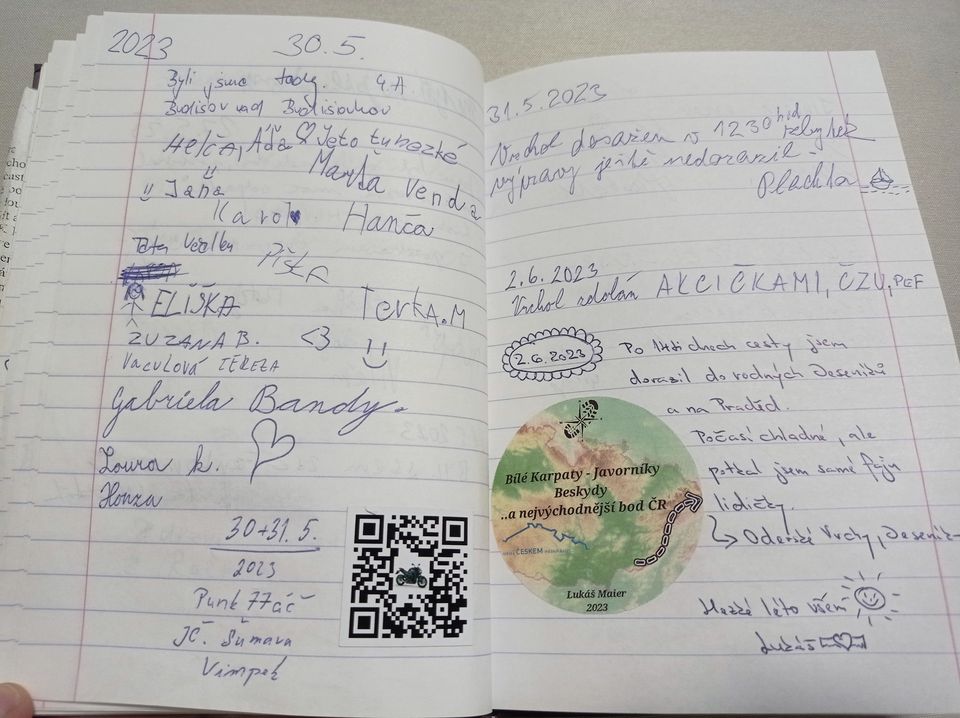 2023 30.5.
Byli jsme tady. 4.A
Budišov nad Budišovkou
Helča, Áďa Jeto ťubezké
Marťa Venda
Jana
Karol Hanča
Píšťa
ELIŠKA Terka.M
ZUZANA B. <3
VACULOVÁ TEREZA
Gabriela Bandy.
Laura k.
Honza
30+31.5.
2023
Punk77áč
JČ. Šumava
Vimperk
31.5.2023
Vrchol dosažen v 1230 hod zbytek
výpravy ještě nedorazil -
Plachta
2.6.2023
Vrchol zdolán AKCIČKAMI, ČZU, PEF
2.6.2023
Po 14ti dnech cesty jsem
dorazil do rodných Jeseníků
a na Praděd.
Počasí chladné, ale
potkal jsem samé fajn
lidičky.
Oderské Vrchy, Jeseník
Hezké léto všem
Lukáš
Bílé Karpaty - Javorníky
Beskydy
..a nejvýchodnější bod ČR
ČESKEM
Lukáš Maier
2023